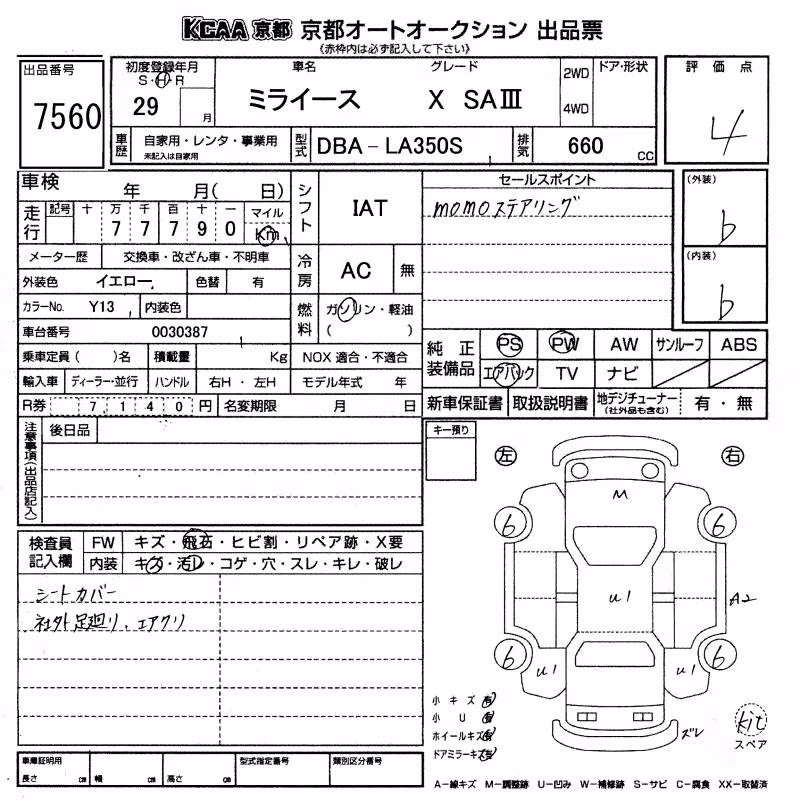 KCAA 京都 京都オートオークション 出品票
《赤枠内は必ず記入して下さい》
出品番号
7560
初度登録年月
S・H・R
29 月
車名 グレード
ミライース X SAⅢ
2WD
4WD
ドア・形状
評価点
4
車歴
自家用・レンタ・事業用
未記入は自家用
型式
DBA-LA350S
排気
660 cc
車検 年 月( 日)
走行
記号 十 万 千 百 十 一 マイル
7 7 7 9 0 Km
メーター歴 交換車・改ざん車・不明車
外装色 イエロー 色替 有
カラーNo. Y13 内装色
車台番号 0030387
乗車定員( )名 積載量 Kg
輸入車 ディーラー・並行 ハンドル 右H・左H
R券 7,140円 名変期限 月 日
シフト IAT
冷房 AC 無
燃料 ガソリン・軽油
( )
NOX 適合・不適合
モデル年式 年
セールスポイント
momoステアリング
(外装)
b
(内装)
b
純正装備品
PS PW AW サンルーフ ABS
エアバック TV ナビ
新車保証書 取扱説明書 地デジチューナー(社外品も含む) 有・無
注意事項(出品店記入)
後日品
キー預り
左 右
検査員記入欄
FW キズ・飛石・ヒビ割・リペア跡・X要
内装 キズ・汚レ・コゲ・穴・スレ・キレ・破レ
シートカバー
社外足廻り、エアクリ
M
6 6
U1
A2
6 6
U1 U1
ズレ
小キズ 有
小U 有
ホイールキズ 有
ドアミラーキズ 有
kit
スペア
車庫証明用
長さ cm 幅 cm 高さ cm
型式指定番号
類別区分番号
A-線キズ M-調整跡 U-凹み W-補修跡 S-サビ C-腐食 XX-取替済